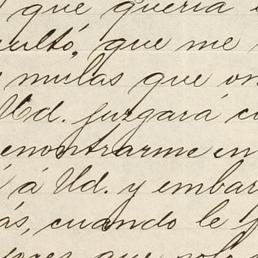 que queria
ultó, que me
mulas que
Ud. juzgará
enontrarme en
á Ud. y embar
ás, cuando le
que